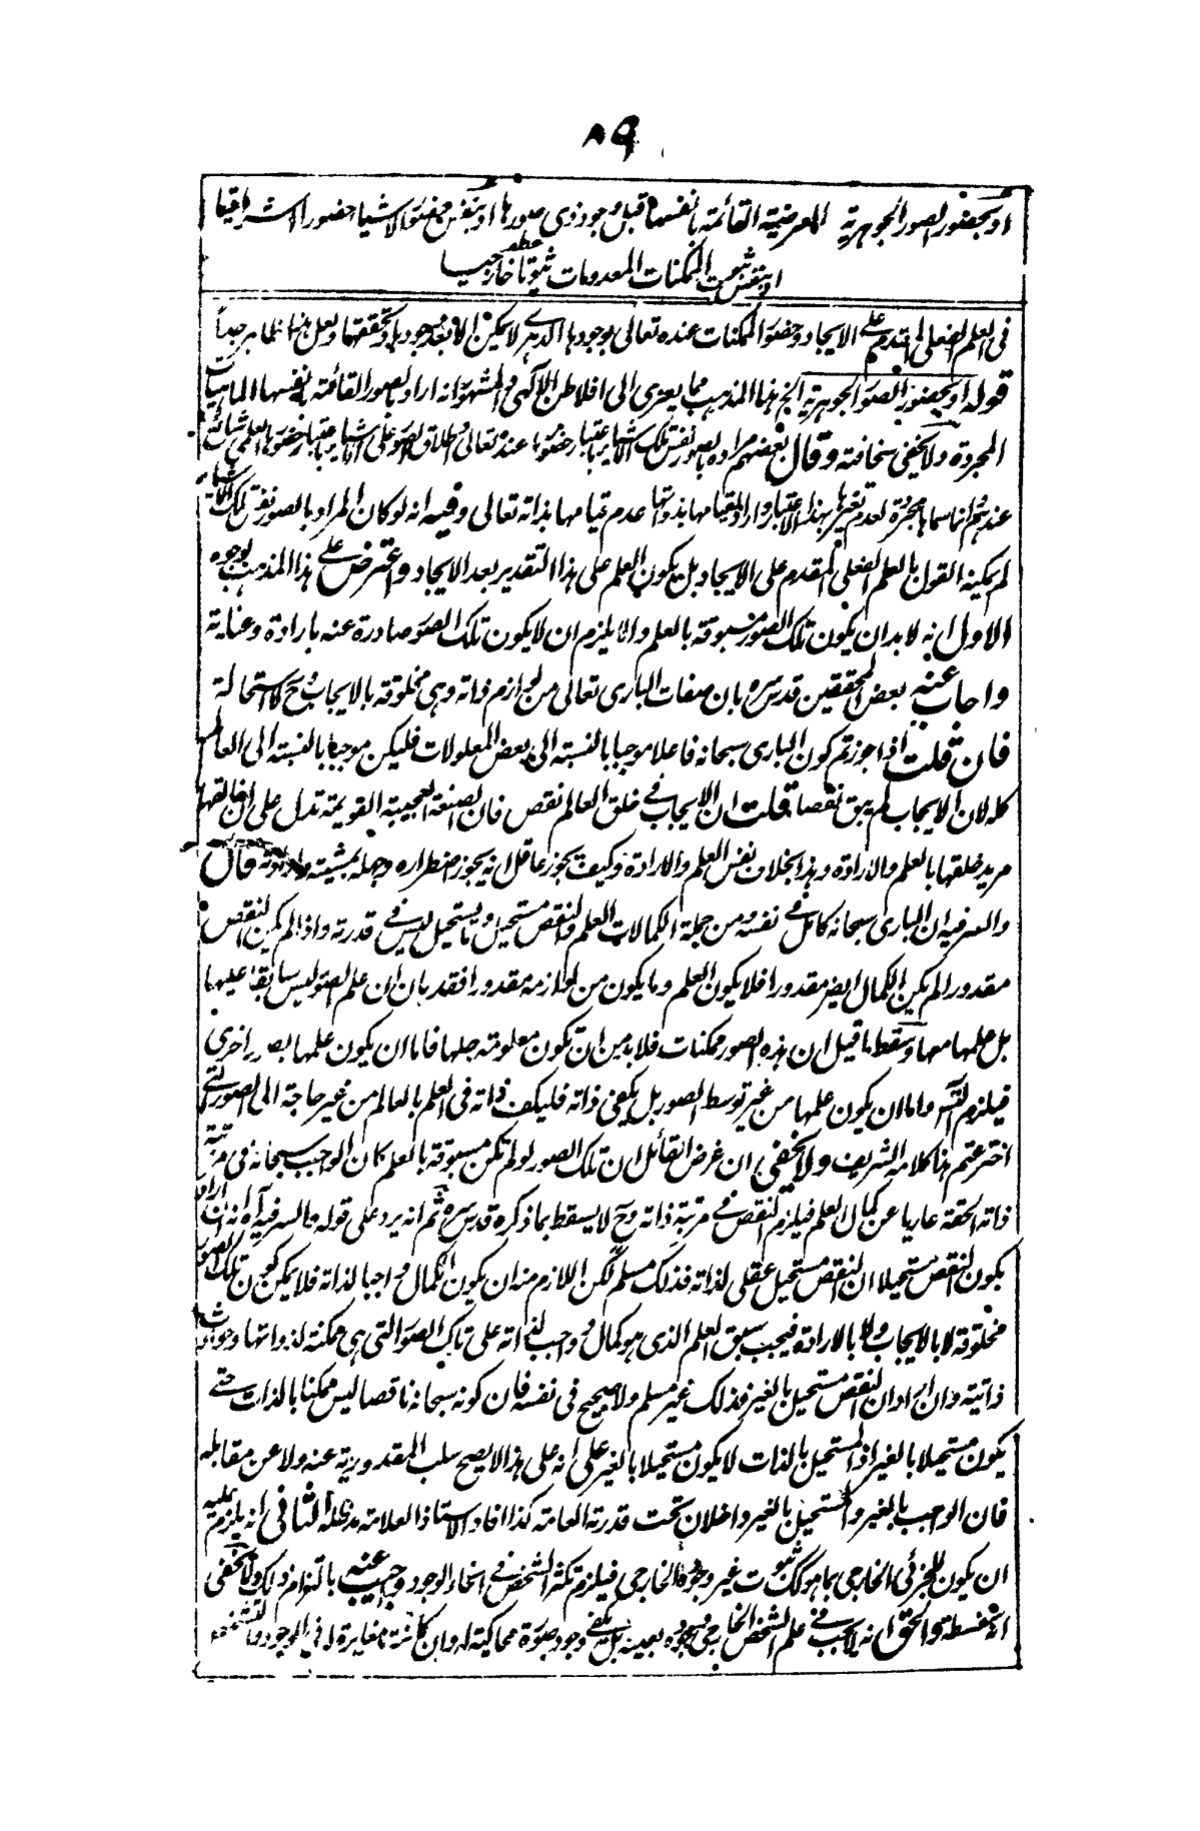 ٨٩
او بحضور الصور الجوهرية العرضية القائمة بانفسها قبل وجود ذى صورها او بنفس حضور الاشياء حضورا اشراقيا
او بنفس ثبوت الممكنات المعدومات ثبوتا خارجيا
فى العلم الفعلى المتقدم على الايجاد وحضور الممكنات عنده تعالى بوجودها الدهرى لا يمكن الا بعد وجودها وتحققها ولعل هذا ظاهر جدا
قوله او بحضور الصور الجوهرية الخ هذا المذهب مما يعزى الى افلاطن الالهى والمشهور انه اراد بالصور القائمة بنفسها الماهيات
المجردة ولا يخفى سخافته وقال بعضهم مراده بالصور نفس تلك الاشياء باعتبار حضورها عنده تعالى واطلاق الصور على الاشياء باعتبار حضورها العلمى شائع
عندهم وانما سماها مجردة لعدم تغيرها بهذا الاعتبار واراد بقيامها بذواتها عدم قيامها بذاته تعالى وفيه انه لو كان المراد بالصور نفس تلك الاشياء
لم يمكنه القول بالعلم الفعلى المقدم على الايجاد بل يكون العلم على هذا التقدير بعد الايجاد واعترض على هذا المذهب بوجوه
الاول انه لا بد ان يكون تلك الصور مسبوقة بالعلم والا يلزم ان لا يكون تلك الصور صادرة عنه بارادة وعناية
واجاب عنه بعض المحققين قدس سره بان صفات البارى تعالى من لوازم ذاته وهى مخلوقة بالايجاب وح لا استحالة
فان قلت اذا جوزتم كون البارى سبحانه فاعلا موجبا بالنسبة الى بعض المعلولات فليكن موجبا بالنسبة الى العالم
كله لان الايجاب لم يبق نقصا قلت ان الايجاب فى خلق العالم نقص فان الصنعة العجيبة القويمة تدل على ان خالقها
مريد خلقها بالعلم والارادة وهذا بخلاف نفس العلم والارادة وكيف يجوز عاقل انه يجوز اضطراره وجهله بمشيته وارادته قال
والسر فيه ان البارى سبحانه كامل فى نفسه ومن جملة الكمالات العلم والنقص مستحيل وما يستحيل ليس فى قدرته واذا لم يكن النقص
مقدورا لم يكن الكمال ايضا مقدورا فلا يكون العلم وما يكون من لوازمه مقدورا فقد بان ان علم الصور ليس سابقا عليها
بل علمها معها وسقط ما قيل ان هذه الصور ممكنات فلا بد من ان تكون معلومة جلها فاما ان يكون علمها بصور اخرى
فيلزم التس واما ان يكون علمها من غير توسط الصور بل يكفى ذاته فليكف ذاته فى العلم بالعالم من غير حاجة الى الصور التى
اخترعتم هذا كلامه الشريف ولا يخفى ان غرض القائل ان تلك الصور لو لم تكن مسبوقة بالعلم كان الواجب سبحانه فى مرتبة
ذاته الحقة عاريا عن كمال العلم فيلزم النقص فى مرتبة ذاته وح لا يسقط بما ذكره قدس سره ثم انه يرد على قوله والسر فيه آه انه ان اراد
بكون النقص مستحيلا ان النقص مستحيل عقلى لذاته فذلك مسلم لكن اللازم منه ان يكون الكمال واجبا لذاته فلا يمكن كون تلك الصور
مخلوقة لا بالايجاب ولا بالارادة فيجب سبق العلم الذى هو كمال واجب لذاته على تلك الصور التى هى ممكنة لذواتها وحوادث
ذاتية وان اراد ان النقص مستحيل بالغير فذلك غير مسلم ولا صحيح فى نفسه فان كونه سبحانه ناقصا ليس ممكنا بالذات حتى
يكون مستحيلا بالغير اذ المستحيل بالذات لا يكون مستحيلا بالغير على انه على هذا لا يصح سلب المقدورية عنه ولا عن مقابله
فان الواجب بالغير والمستحيل بالغير داخلان تحت قدرته العامة كذا افاد الاستاذ العلامة مد ظله الثانى انه يلزم عليه
ان يكون للجزئى الخارجى بما هو كك ثبوت غير وجوده الخارجى فيلزم تكثر الشخص فى انحاء الوجود واجيب عنه بالتزام ذلك ولا يخفى
انه سفسطة والحق انه لا يجب فى علم الشخص الخارجى وجوده بعينه بل يكفى وجود صورة محاكية له وان كانت مغايرة له فى الوجود والتشخص